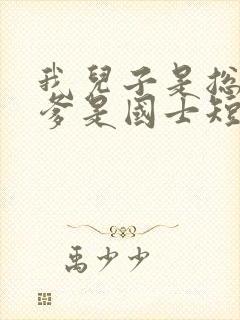 我兒子是總
爹是國士短
禹少少